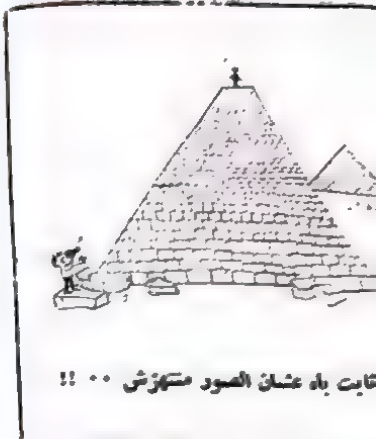 ثابت بأه عشان الصور متتهزش ‥ !!